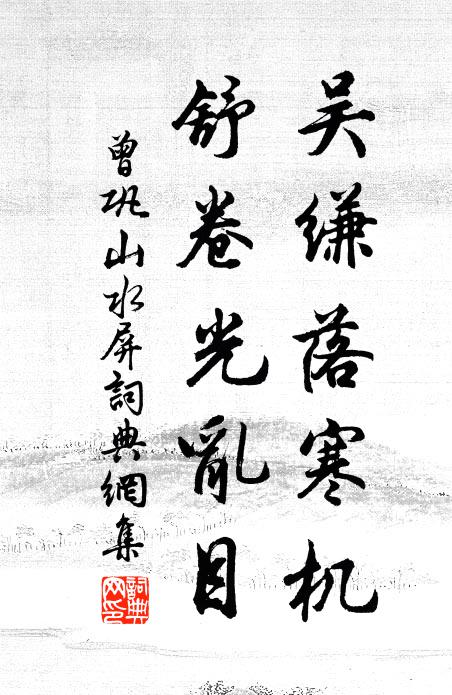 吴缣落寒机
舒卷光亂目
曾巩山水屏詞典網集
詞典网印